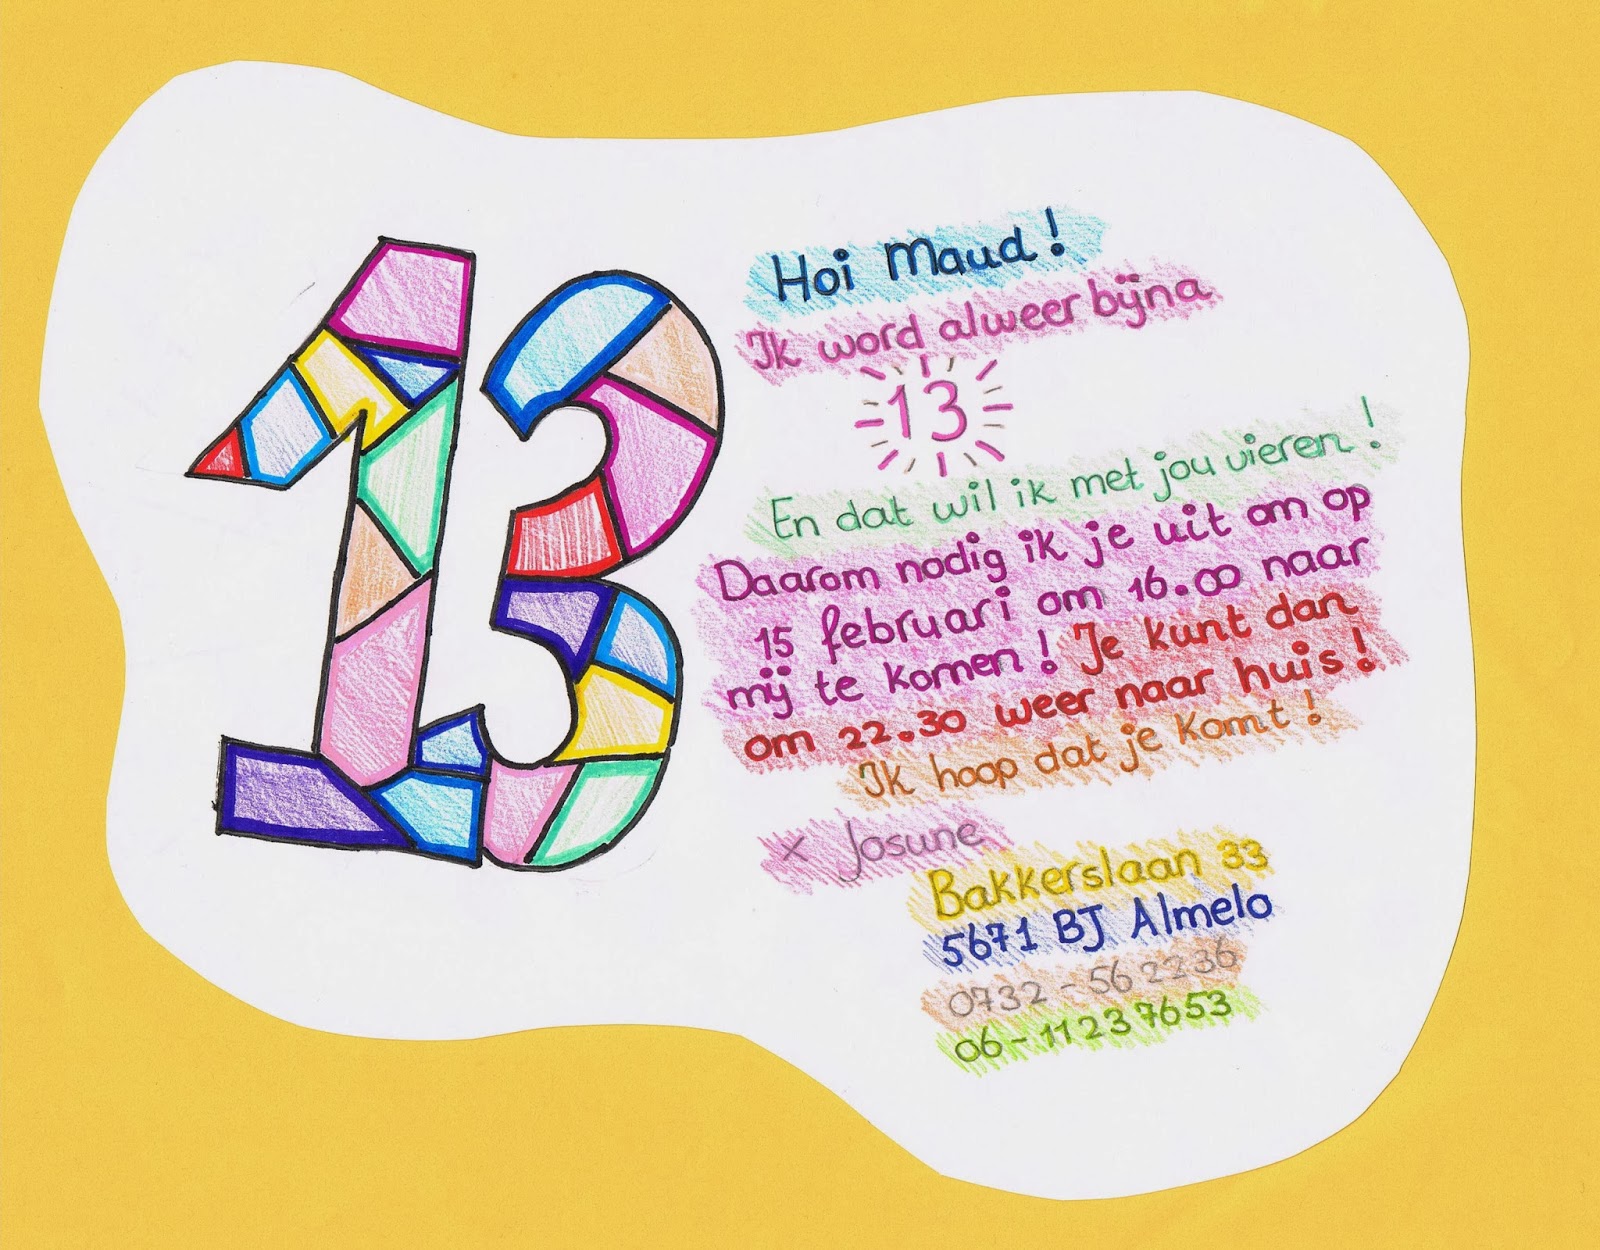 13
Hoi Maud!
Ik word alweer bijna
13
En dat wil ik met jou vieren!
Daarom nodig ik je uit om op
15 februari om 16.00 naar
mij te komen! Je kunt dan
om 22.30 weer naar huis!
Ik hoop dat je komt!
x Josune
Bakkerslaan 33
5671 BJ Almelo
0732-562236
06-11237653